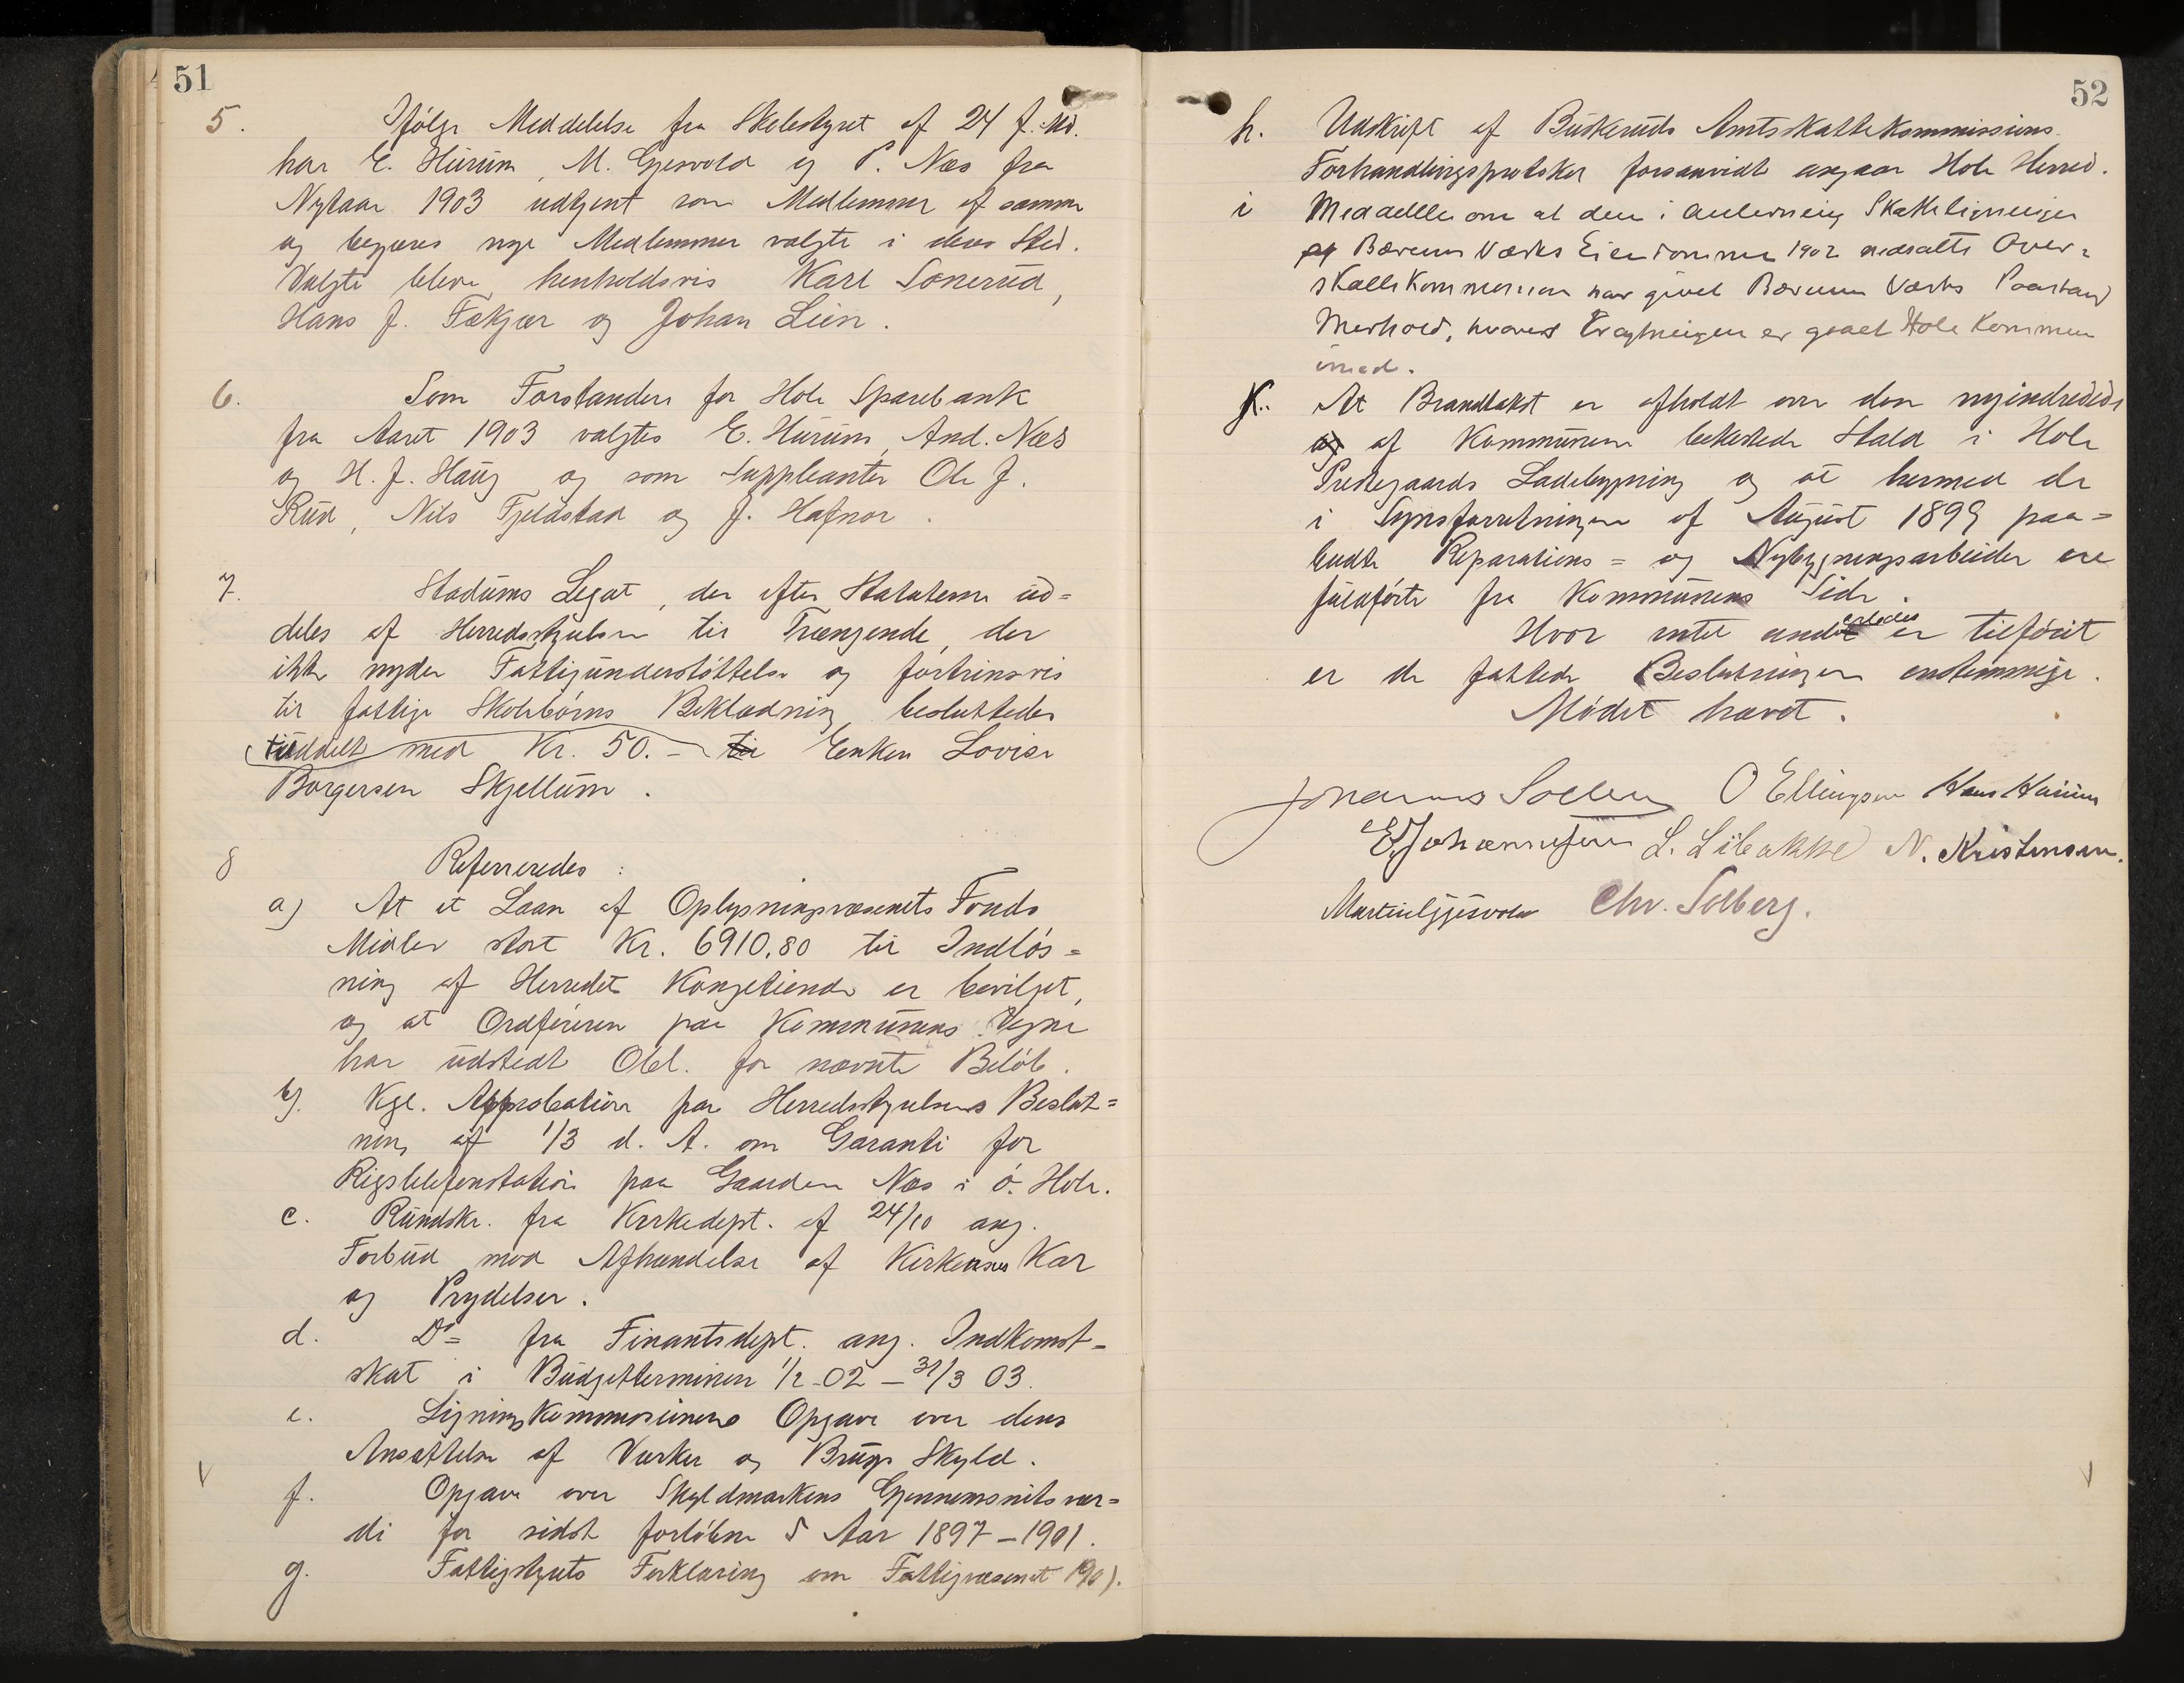 51
5. Ifølge Meddelelse fra Skolestyret af 24 f. Md.
har E. Hurum, M. Gjesvold og P. Næs fra
Nytaar 1903 udtjent som Medlemmer af samme
og begjæres nye Medlemmer valgte i deres Sted.
Valgte bleve henholdsvis Karl Sønerud,
Hans J. Fækjær og Johan Lien.
6. Som Forstandere for Hole Sparebank
fra Aaret 1903 valgtes E. Hurum, And. Næs
og H. J. Haug og som Suppleanter Ole J.
Rud, Nils Fjeldstad og J. Hafnor.
7. Stadums Legat, der efter Statuterne ud=
deles af Herredsstyrelsen til Trængende, der
ikke nyder Fattigunderstøttelse og fortrinsvis
til fattige Skolebørns Beklædning, besluttedes
uddelt med Kr. 50.- til Enken Lovise
Borgersen Skjellum.
8 Refereredes:
a) At et Laan af Oplysningsvæsenets Fonds
Midler stort Kr. 6910.80 til Indløs=
ning af Herredets Kongetiende er bevilget,
og at Ordføreren paa Kommunens Vegne
har udstedt Obl. for nævnte Beløb.
b). Kgl. Approbation paa Herredsstyrelsens Beslut=
ning af 1/3 d. A. om Garanti for
Rigstelefonstation paa Gaarden Næs i ø. Hole.
c. Rundskr. fra Kirkedept. af 24/10 ang.
Forbud mod Afhændelse af Kirkernes Kar
og Prydelser.
d. Do= fra Finantsdept. ang. Indkomst-
skat i Budgetterminen 1/2 -02 - 31/3 03.
e. Ligningskommissionens Opgave over dens
Ansættelse af Værker og Brugs Skyld.
f. Opgave over Skyldmarkens Gjennemsnitsvær=
di for sidst forløbne 5 Aar 1897-1901.
g. Fattigstyrets Forklaring om Fattigvæsenet 1901.
52
h. Udskrift af Buskeruds Amtsskattekommissions
Forhandlingsprotokol forsaavidt angaar Hole Herred.
i Meddelelse om at den i Anledning Skatteligningen
Bærums Værks Eiendommer 1902 nedsatte Over=
skattekommission har givet Bærums Værks Paastand
Medhold, hvorved er gaaet Hole Kommune
imod.
K.. At Brandtakst er afholdt over den nyindredede
af Kommunen bekostede Stald i Hole
Prestegaards Ladebygning og at hermed de
i Synsforretningen af August 1899 paa=
budte Reparations= og Nybygningsarbeider ere
fuldførte fra Kommunens Side.
Hvor intet anderledes er tilføiet
er de fattede Beslutninger enstemmige.
Mødet hævet.
Johannes Sollien O Ellingsen Hans Hurum
E. Johannesen L. Libakke N. Kristensen.
Martin Gjesvold Chr. Solberg.